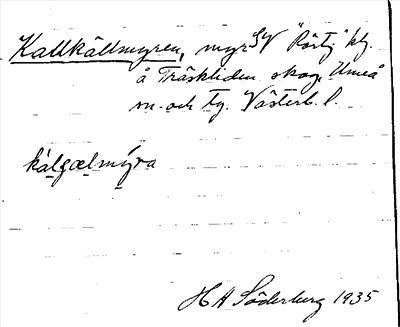 Kallkällmyren, myr SV "Rörtj." blg.
å Träskliden skog, Umeå
sn. och tg. Västerb. l.
kálgælmýra
H A Söderberg 1935